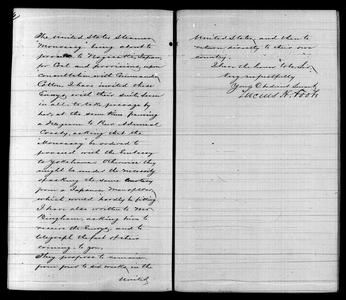 The United States Steamer
"Monocacy" being about to
proceed to Nagasaki, Japan,
for Coal and provisions, upon
consultation with Commander
Cotton I have invited these
Envoys, with their suite seven
in all, to take passage by
her, at the same time sending
a telegram to Rear Admiral
Crosby, asking that the
Monocacy be ordered to
proceed with the Embassy
to Yokohama. Otherwise they
might be under the necessity
of asking the same
from a Japanese Man of War,
which would hardly be fitting
I have also written to Mr
Bingham, asking him to
receive the Envoys, and to
telegraph the fact of their
coming to you.
They propose to remain
from four to six weeks in the
United
United States, and then to
return directly to their own
country.
I have the honor to be Sir
Very respectfully
Your Obedient Servt
Lucius H. Foote